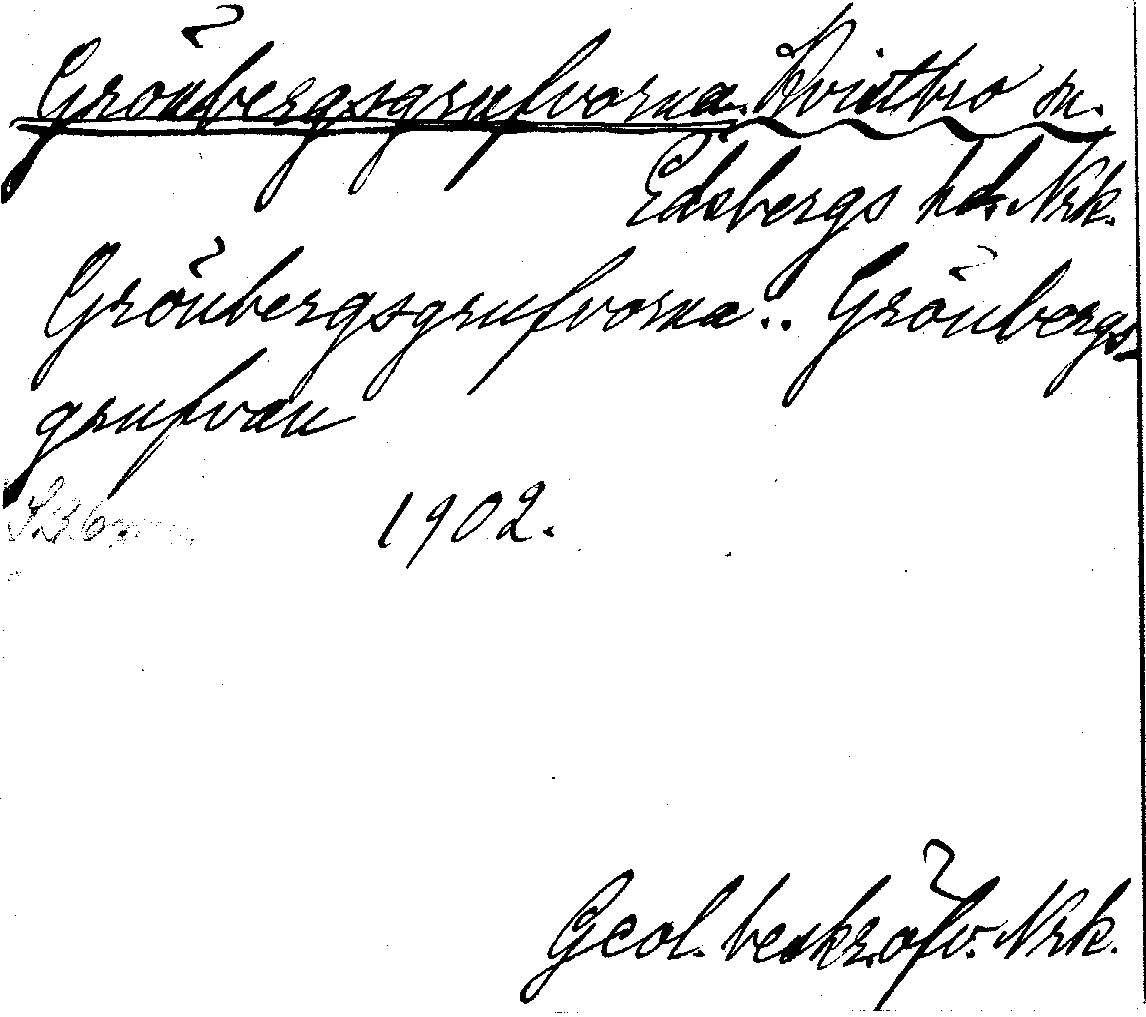 Grönbergsgrufvorna. Kvistbro sn.
Edsbergs hd. Nrk.
Grönbergsgrufvorna.. Grönbergs-
grufvan
1902.
Geol. beskr. öfv. Nrk.